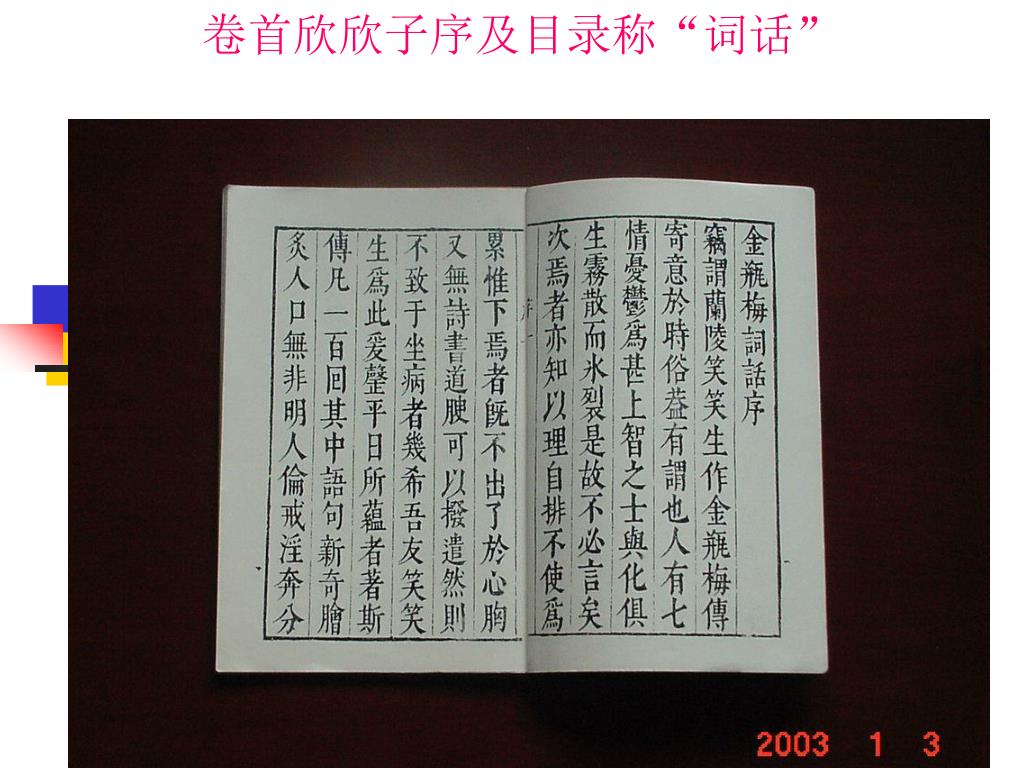 卷首欣欣子序及目录称“词话”
金瓶梅詞話序
竊謂蘭陵笑笑生作金瓶梅傳
寄意於時俗葢有謂也人有七
情憂鬱爲甚上智之士與化俱
生霧散而氷裂是故不必言矣
次焉者亦知以理自排不使爲
累惟下焉者旣不出了於心胸
又無詩書道腴可以撥遣然則
不致于坐病者幾希吾友笑笑
生爲此爰罄平日所蘊者著斯
傳凡一百回其中語句新奇膾
炙人口無非明人倫戒淫奔分
2003 1 3